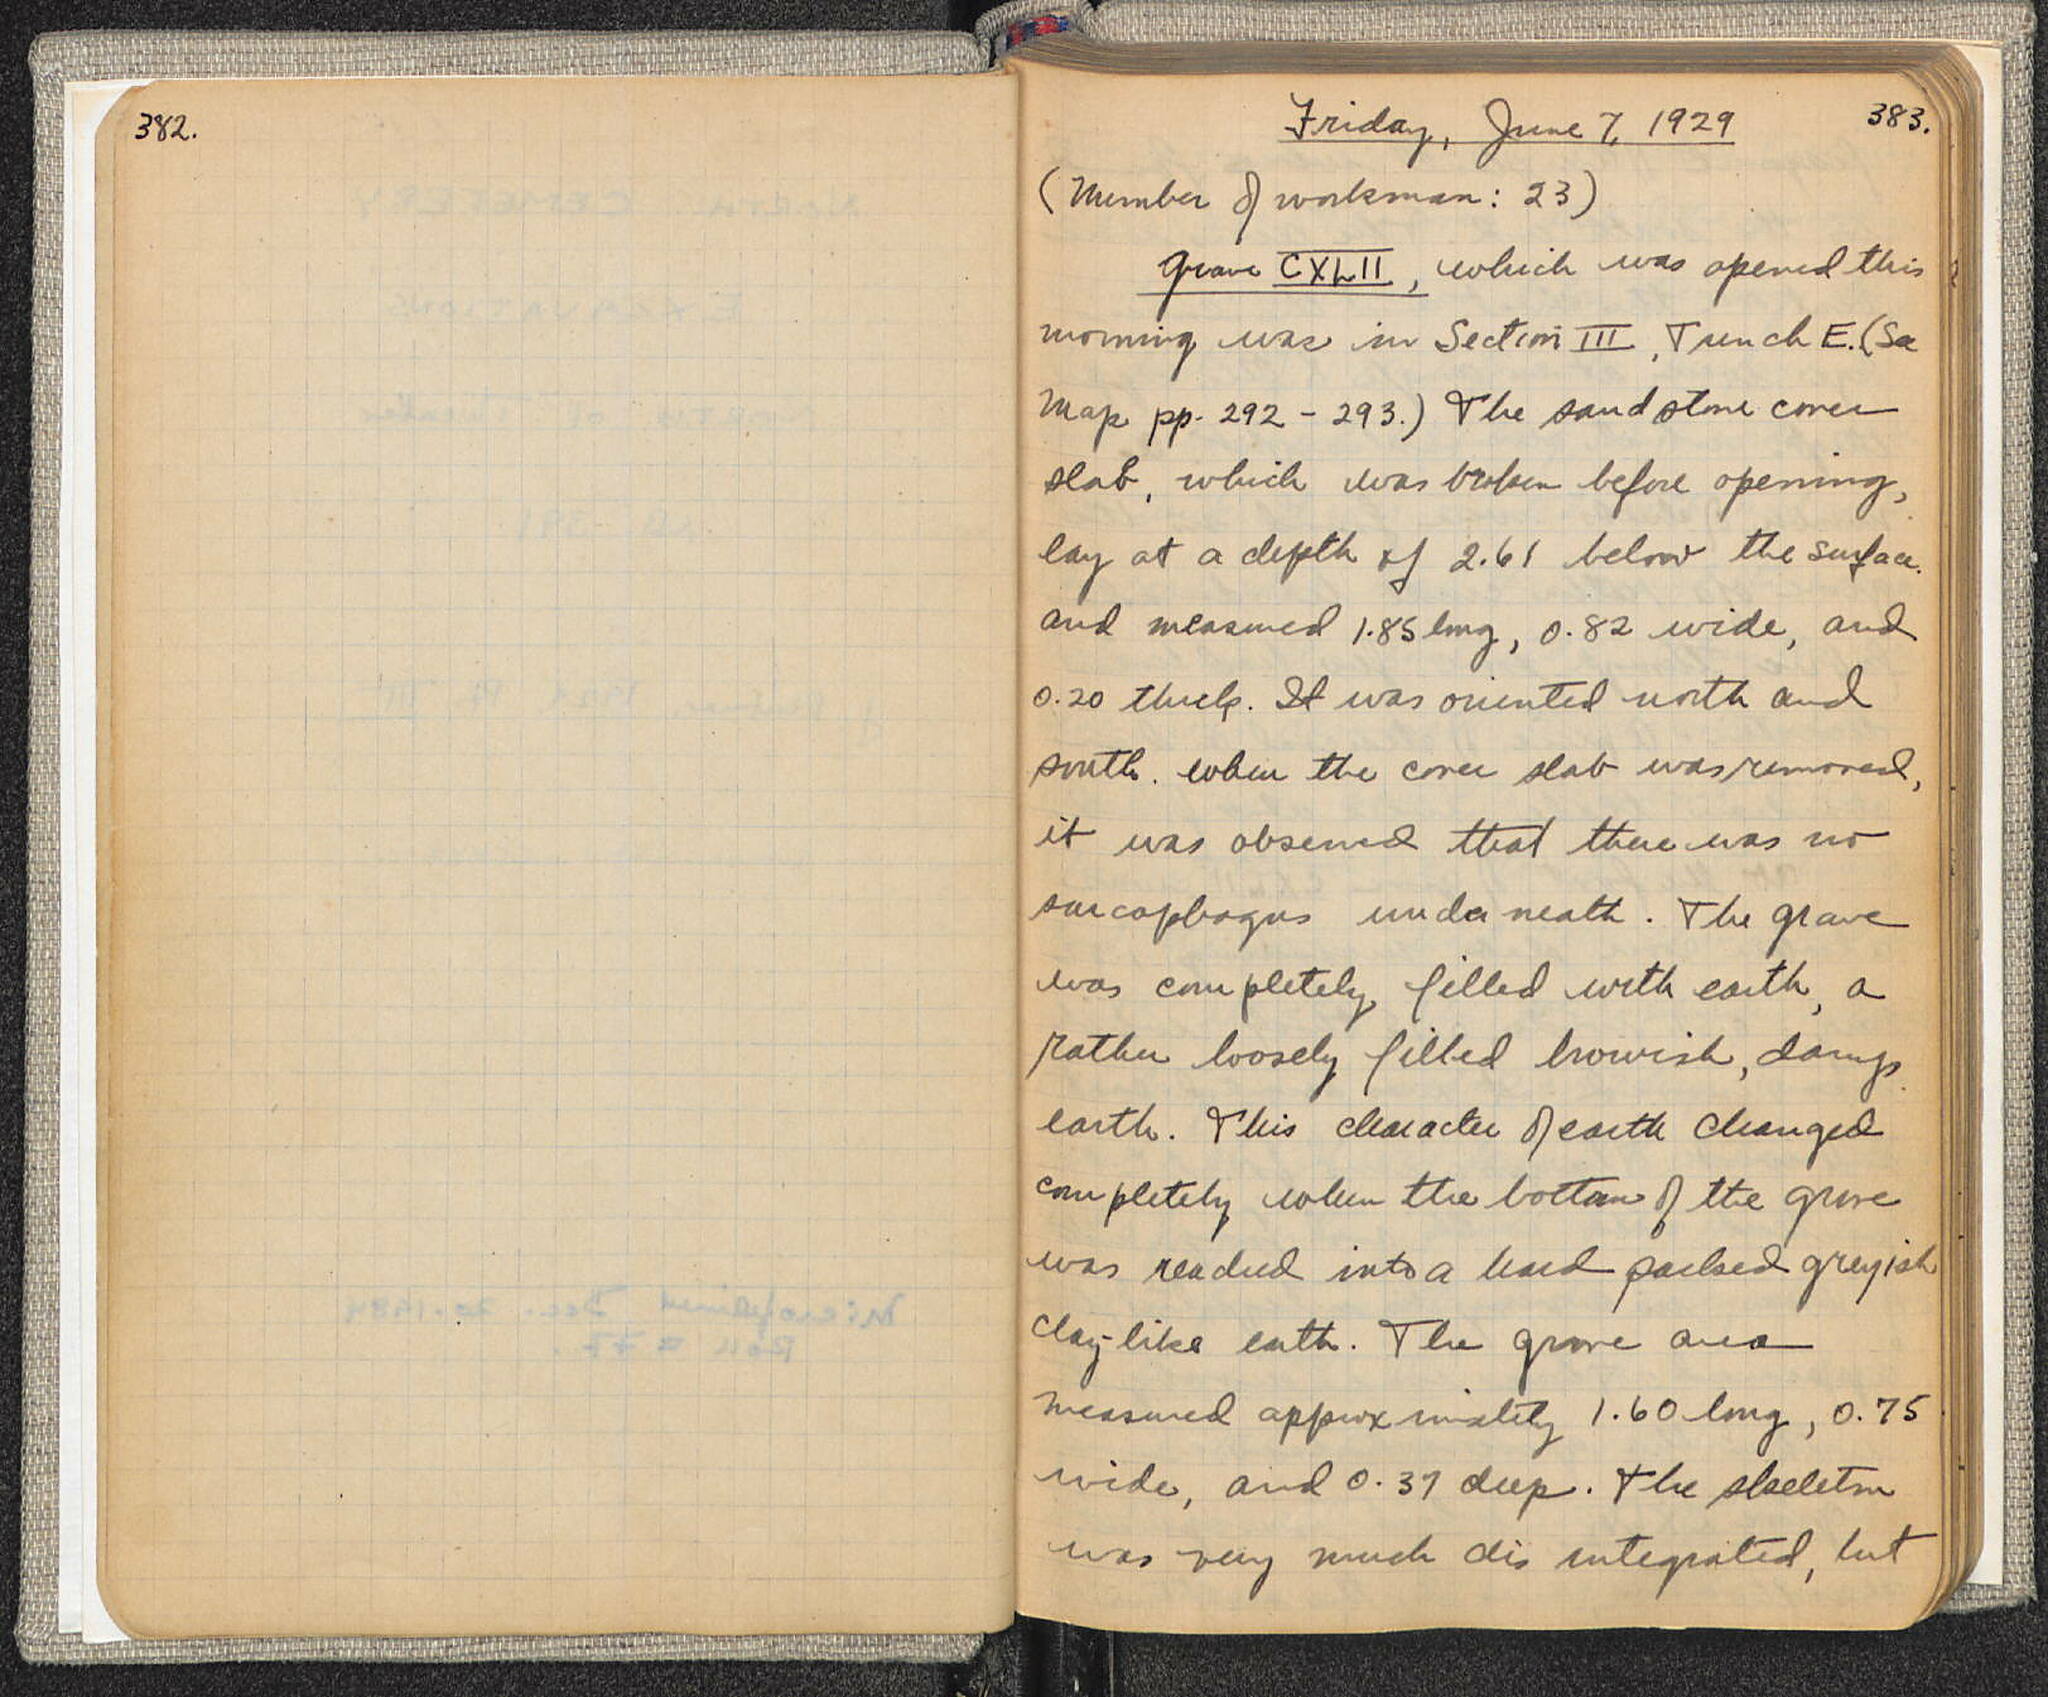 382.
383.
Friday, June 7, 1929
(Number of workman: 23)
Grave CXLII, which was opened this
morning was in Section III, Trench E. (See
Map pp. 292 - 293.) The sandstone cover
slab, which was broken before opening,
lay at a depth of 2.61 below the surface.
and measured 1.85 long, 0.82 wide, and
0.20 thick. It was oriented north and
south. When the cover slab was removed,
it was observed that there was no
sarcophagus underneath. The grave
was completely filled with earth, a
rather loosely filled browish, damp
earth. This character of earth changed
completely when the bottom of the grave
was reached into a hard packed greyish
clay-like earth. The grave area
measured approximately 1.60 long, 0.75
wide, and 0.37 deep. The skeleton
was very much disintegrated, but